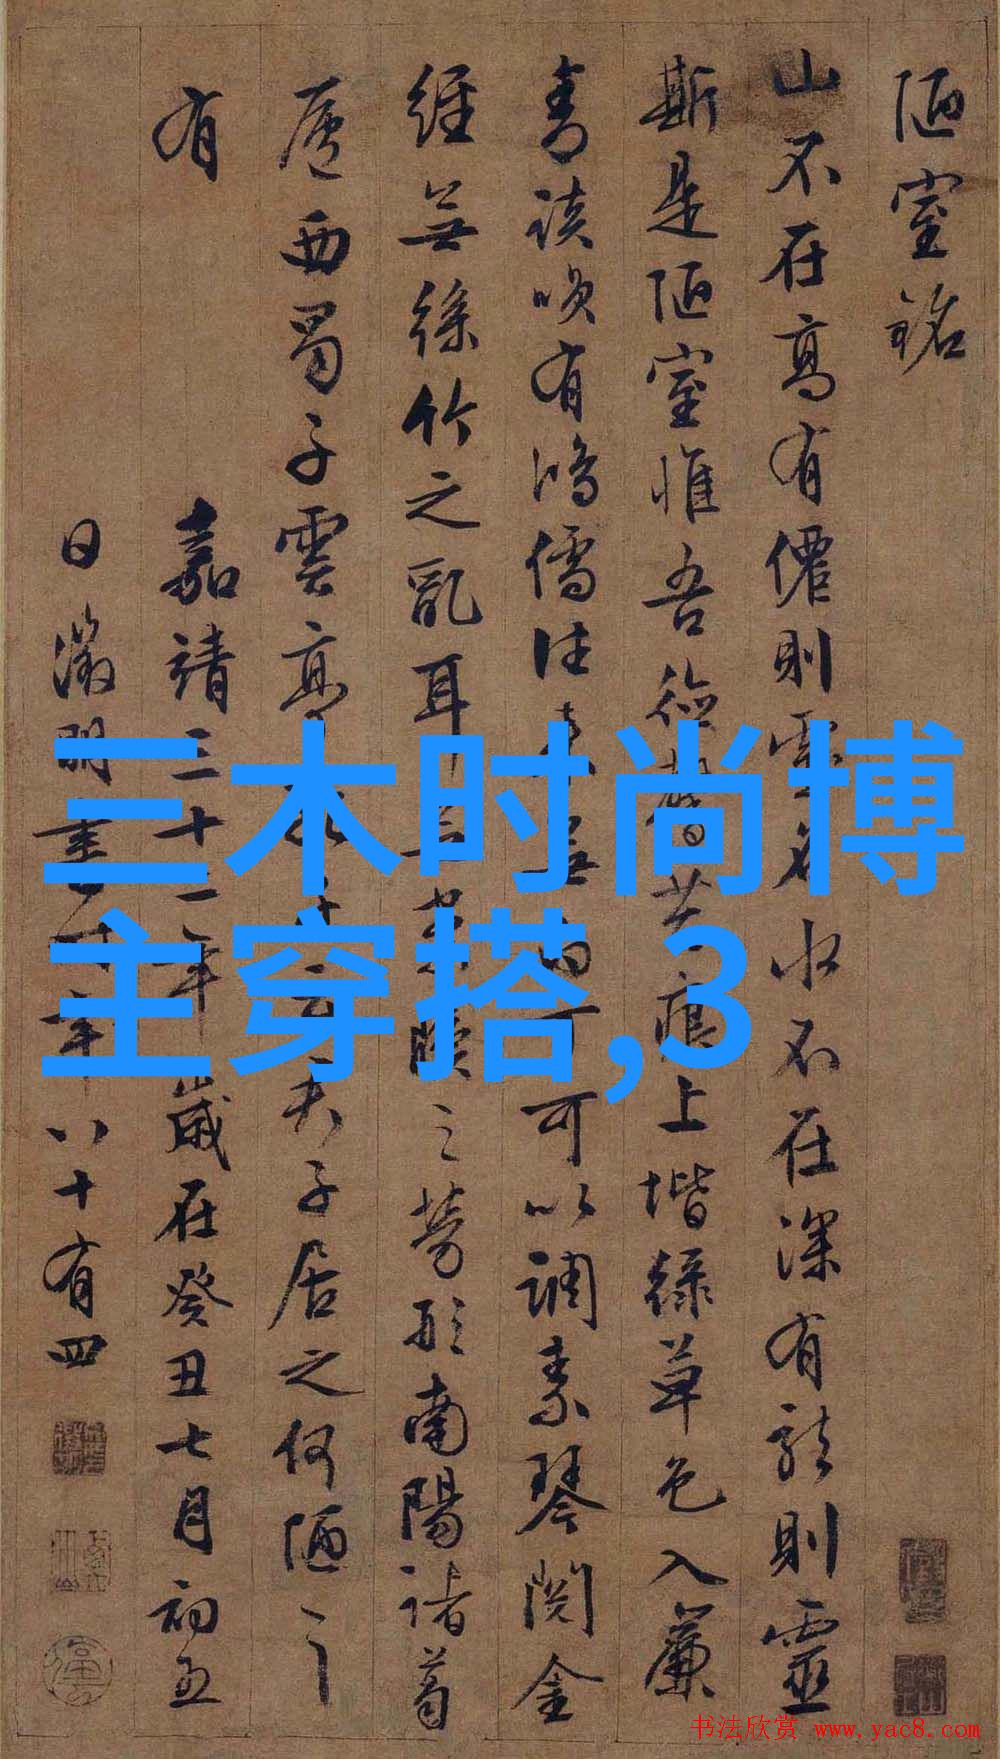 陋室銘
山不在高有僊則名水不在深有龍則靈
斯是陋室惟吾德馨苔痕上堦緑草色入簾
青談咲有鴻儒往来無白丁可以調素琴閱金
經無絲竹之亂耳無案牘之勞形南陽諸葛
廬西蜀子雲亭孔子云夫子居之何陋之
有
嘉靖三十二年歲在癸丑七月初五
日徵明書時年八十有四
三木时尚博
主穿搭,3
书法欣赏 www.yac8.com